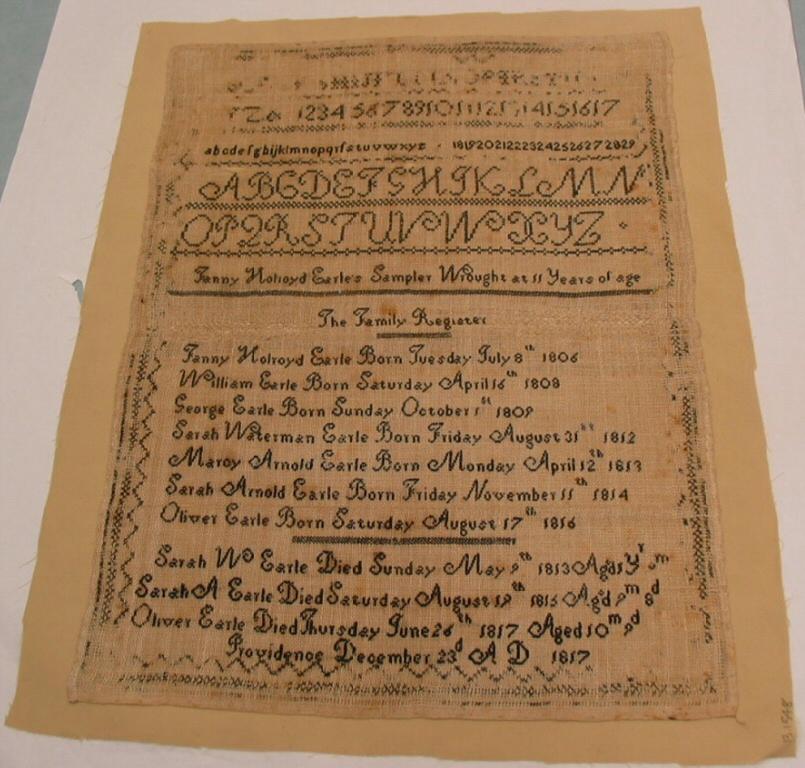 Z & 1234567891011121314151617
abcdefghijklmnopqrſstuvwxyz 181920212223242526272829
ABCDEFGHIKLMN
OPQRSTUVWXYZ
Fanny Holroyd Earle's Sampler Wrought at 11 Years of age
The Family Register
Fanny Holroyd Earle Born Tuesday July 8th 1806
William Earle Born Saturday April 16th 1808
George Earle Born Sunday October 1st 1809
Sarah Waterman Earle Born Friday August 31st 1812
Marcy Arnold Earle Born Monday April 12th 1813
Sarah Arnold Earle Born Friday November 11th 1814
Oliver Earle Born Saturday August 17th 1816
Sarah Wn Earle Died Sunday May 9th 1813 Agd
Sarah A Earle Died Saturday August 19th 1815 Agd 9m 8d
Oliver Earle Died Thursday June 26th 1817 Aged 10m 9d
Providence December 23d A D 1817